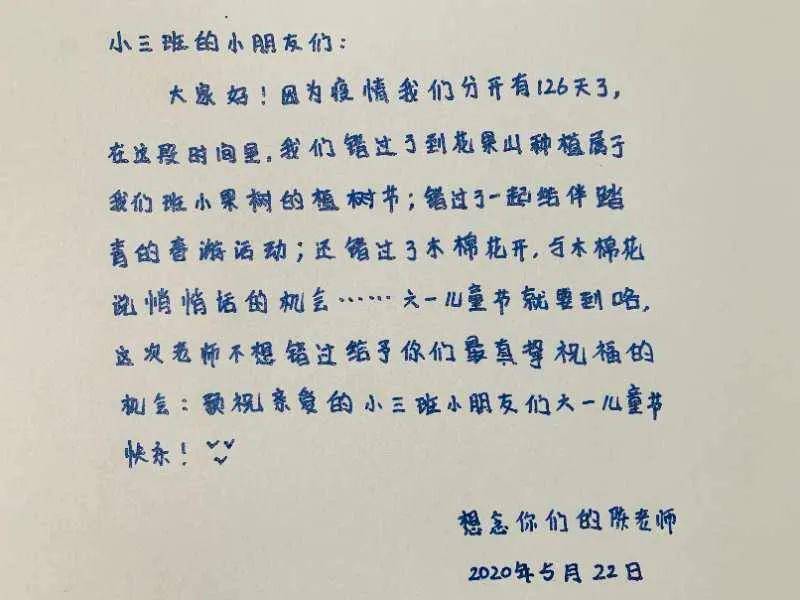 小三班的小朋友们:
大家好!因为疫情我们分开有126天了,
在这段时间里,我们错过了到花果山种植属于
我们班小果树的植树节;错过了一起结伴踏
青的春游活动;还错过了木棉花开,与木棉花
说悄悄话的机会……六一儿童节就要到咯,
这次老师不想错过给予你们最真挚祝福的
机会:预祝亲爱的小三班小朋友们六一儿童节
快乐!
想念你们的陈老师
2020年5月22日